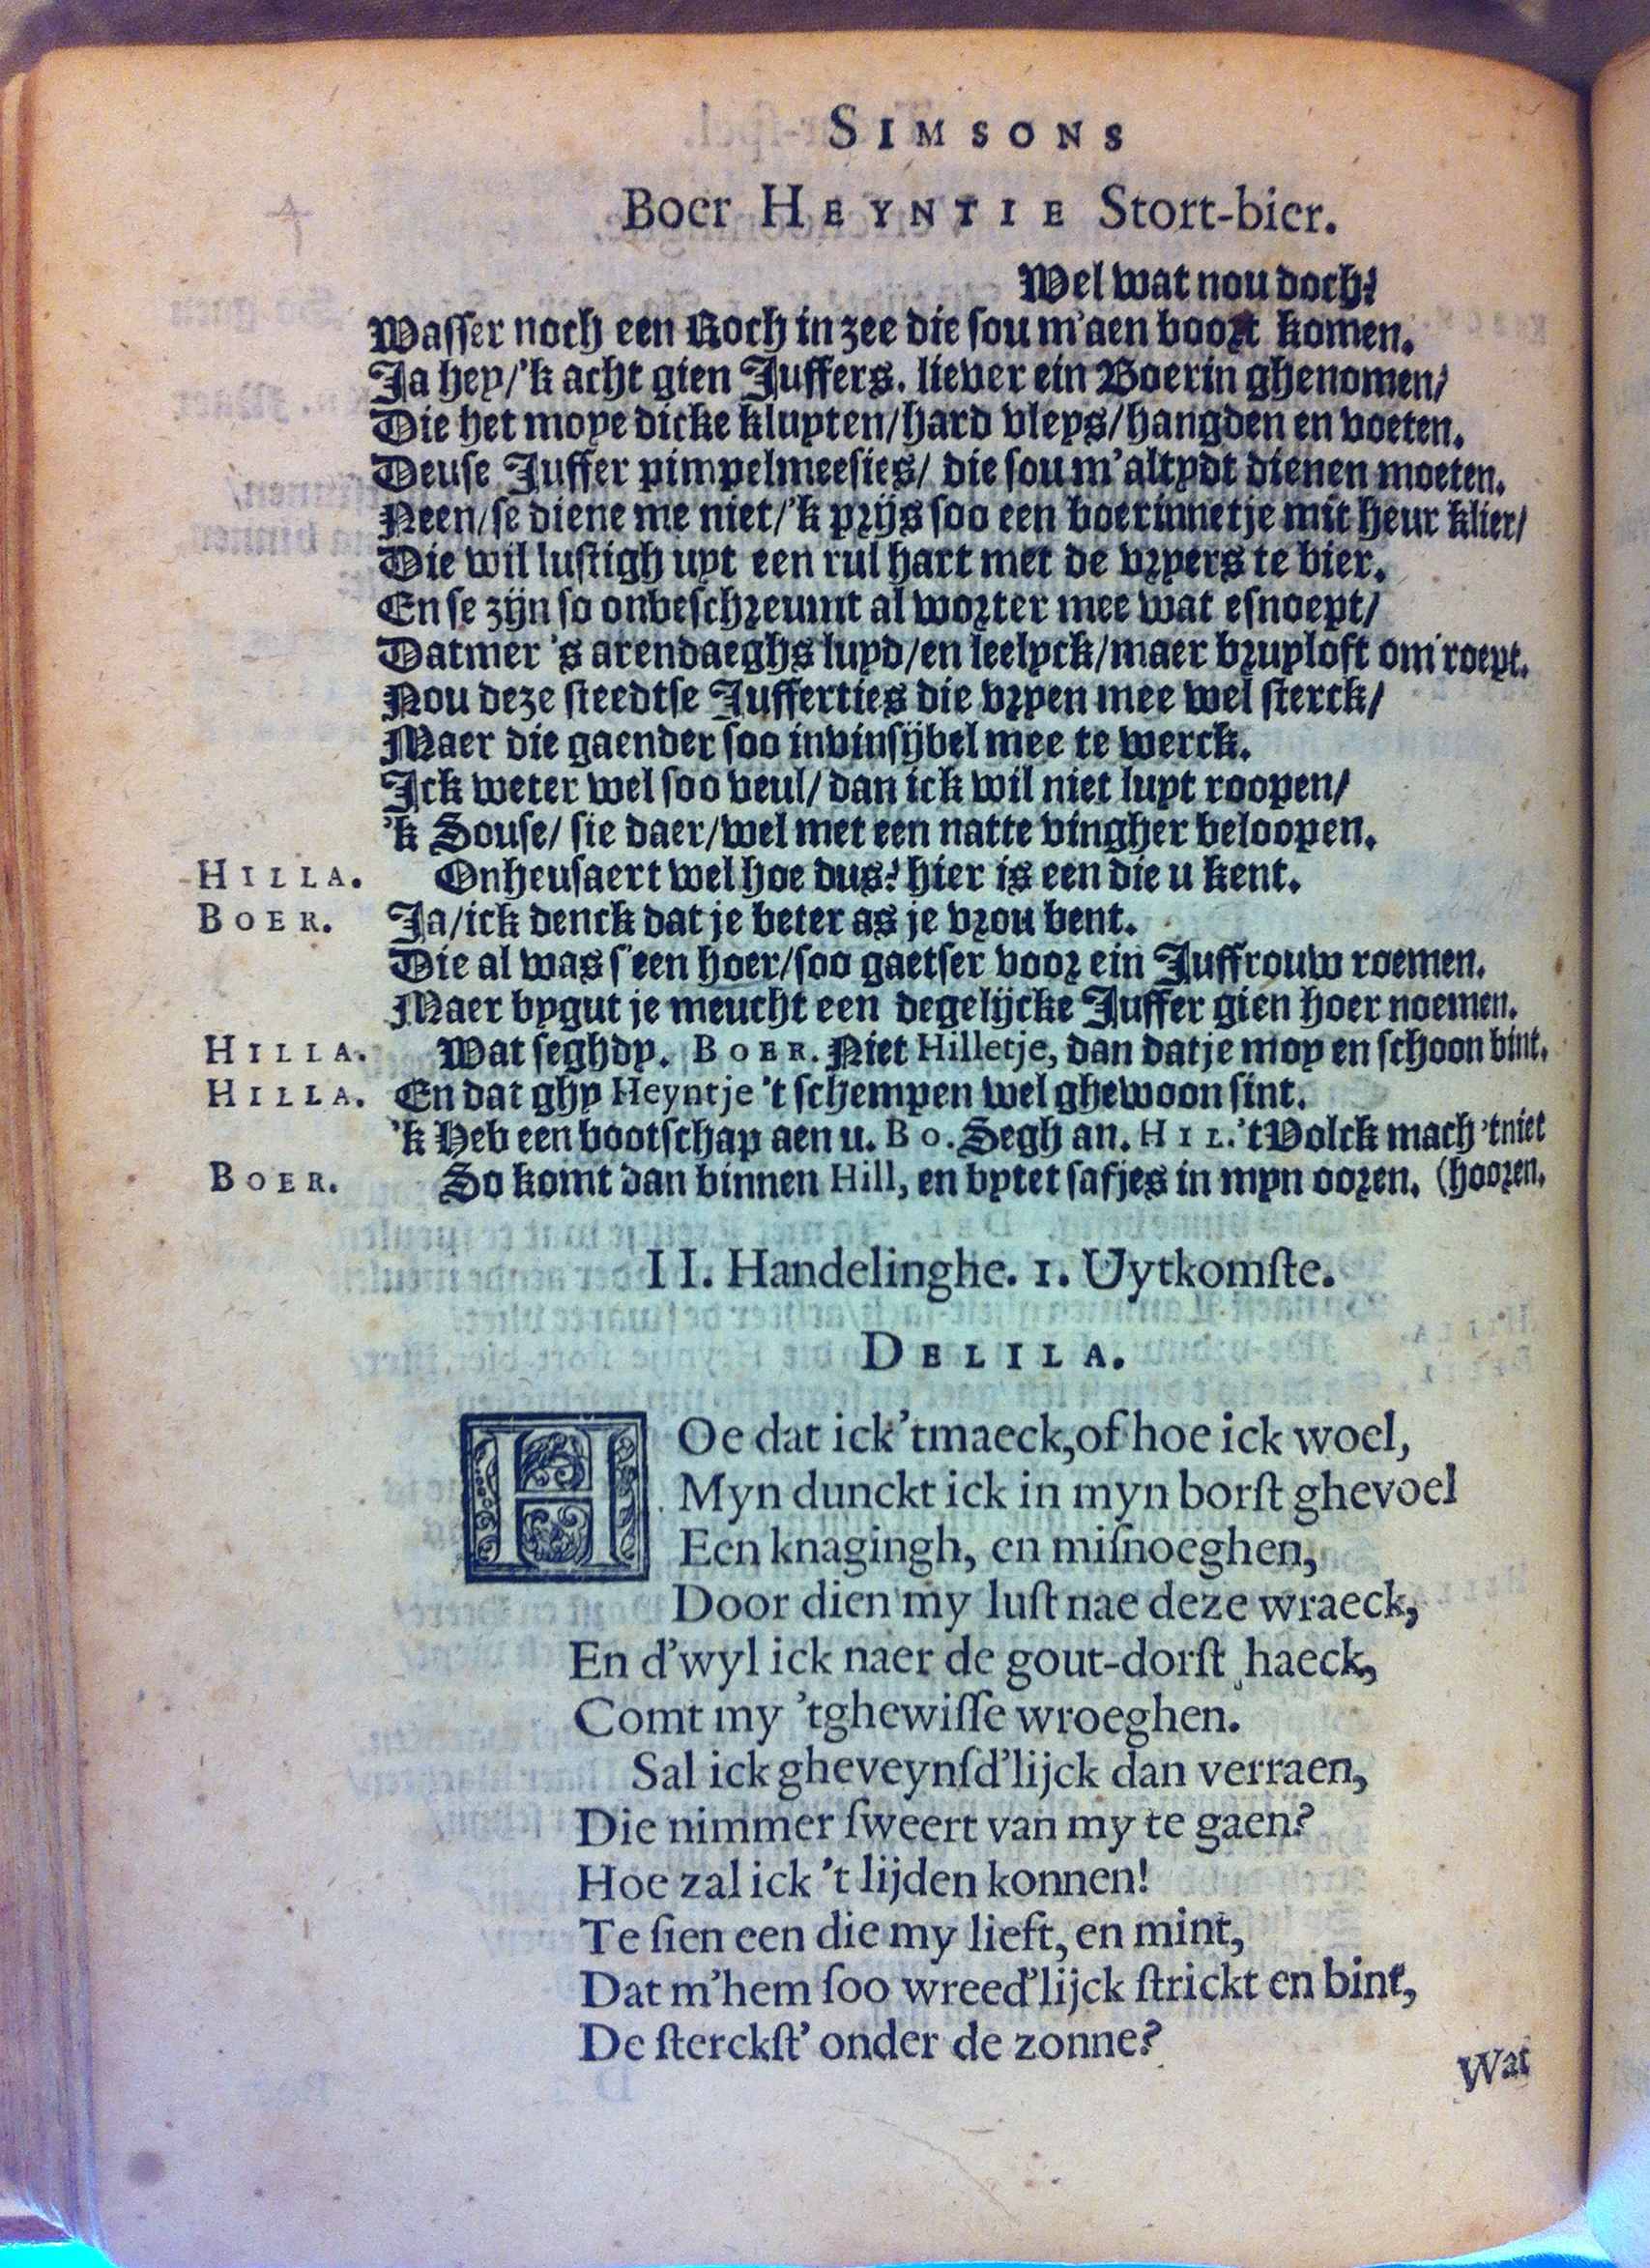 SIMSONS
Boer HEYNTIE Stort-bier.
Wel wat nou doch?
Wasser noch een Roch in zee die sou m'aen boort komen.
Ja hey/'k acht gien Juffers. liever ein Boerin ghenomen/
Die het moye dicke kluyten/hard vleys/hangden en voeten.
Deuse Juffer pimpelmeesies/ die sou m'altydt dienen moeten.
Neen/se diene me niet/'k prijs soo een boerinnetje mit heur klier/
Die wil lustigh uyt een rul hart met de vryers te bier.
En se zijn so onbeschreumt al worter mee wat esnoept/
Datmer 's arendaeghs luyd/en leelyck/maer bruyloft om roept.
Nou deze steedtse Jufferties die vryen mee wel sterck/
Maer die gaender soo invinsijbel mee te werck.
Ick weter wel soo veul/dan ick wil niet luyt roopen/
'k Souse/ sie daer/wel met een natte vingher beloopen.
HILLA. Onheusaert wel hoe dus? hier is een die u kent.
BOER. Ja/ick denck dat je beter as je vrou bent.
Die al was s'een hoer/soo gaetser voor ein Juffrouw roemen.
Maer bygut je meucht een degelijcke Juffer gien hoer noemen.
HILLA. Wat seghdy. BOER. Niet Hilletje, dan datje moy en schoon bint.
HILLA. En dat ghy Heyntje 't schempen wel ghewoon sint.
'k Heb een bootschap aen u. Bo. Segh an. HIL. 'tVolck mach 'tniet
BOER. So komt dan binnen Hill, en bytet safjes in myn ooren. (hooren.
II. Handelinghe. 1. Uytkomste.
DELILA.
HOe dat ick 'tmaeck, of hoe ick woel,
Myn dunckt ick in myn borst ghevoel
Een knagingh, en misnoeghen,
Door dien my lust nae deze wraeck,
En d'wyl ick naer de gout-dorst haeck,
Comt my 'tghewisse wroeghen.
Sal ick gheveynsd'lijck dan verraen,
Die nimmer sweert van my te gaen?
Hoe zal ick 't lijden konnen!
Te sien een die my lieft, en mint,
Dat m'hem soo wreed'lijck strickt en bint,
De sterckst' onder de zonne?
Wat